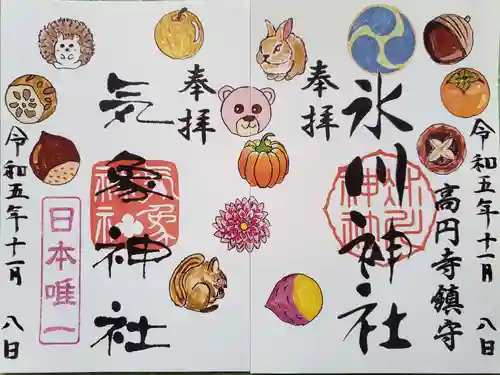 令和五年十一月 八日
高円寺鎮守
氷川神社
奉拝
令和五年十一月 八日
奉拝
気象神社
日本唯一